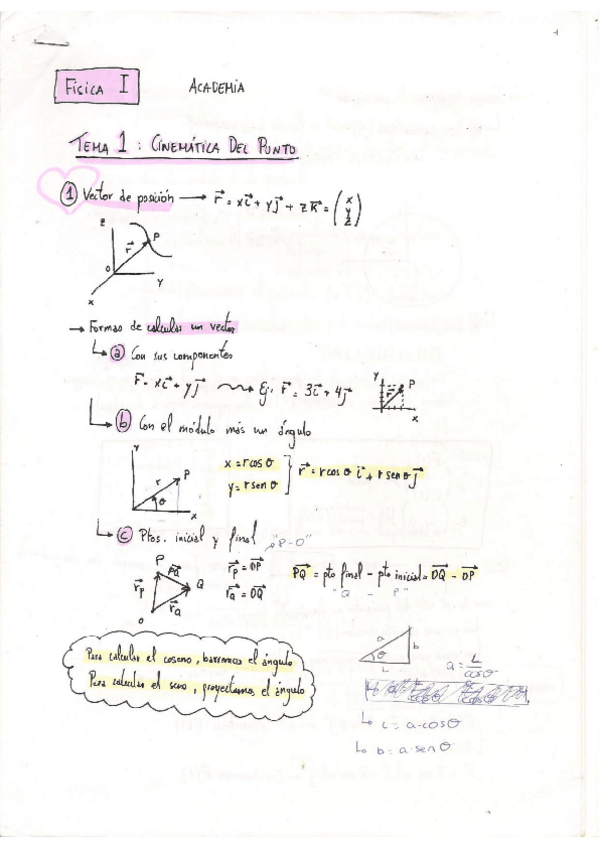 FÍSICA I
ACADEMIA
TEMA 1 : CINEMÁTICA DEL PUNTO
① Vector de posición → r⃗ = xi⃗ + yj⃗ + zk⃗ = (x y z)
z
P
r⃗
O
y
x
→ Formas de calcular un vector
↳ ⓐ Con sus componentes
r⃗ = xi⃗ + yj⃗ ⇝ Ej. r⃗ = 3i⃗ + 4j⃗
y
P
r⃗
x
↳ ⓑ Con el módulo más un ángulo
y
P
r
θ
x
x = r cos θ
y = r sen θ
r⃗ = r cos θ i⃗ + r sen θ j⃗
↳ ⓒ Ptos. inicial y final
"P-O"
P
PQ⃗
Q
r⃗P
r⃗Q
O
r⃗P = OP⃗
r⃗Q = OQ⃗
PQ⃗ = pto final - pto inicial = OQ⃗ - OP⃗
"Q - P"
Para calcular el coseno, barremos el ángulo
Para calcular el seno, proyectamos el ángulo
a
b
θ
L
a = L/cosθ
↳ L = a·cosθ
↳ b = a·senθ